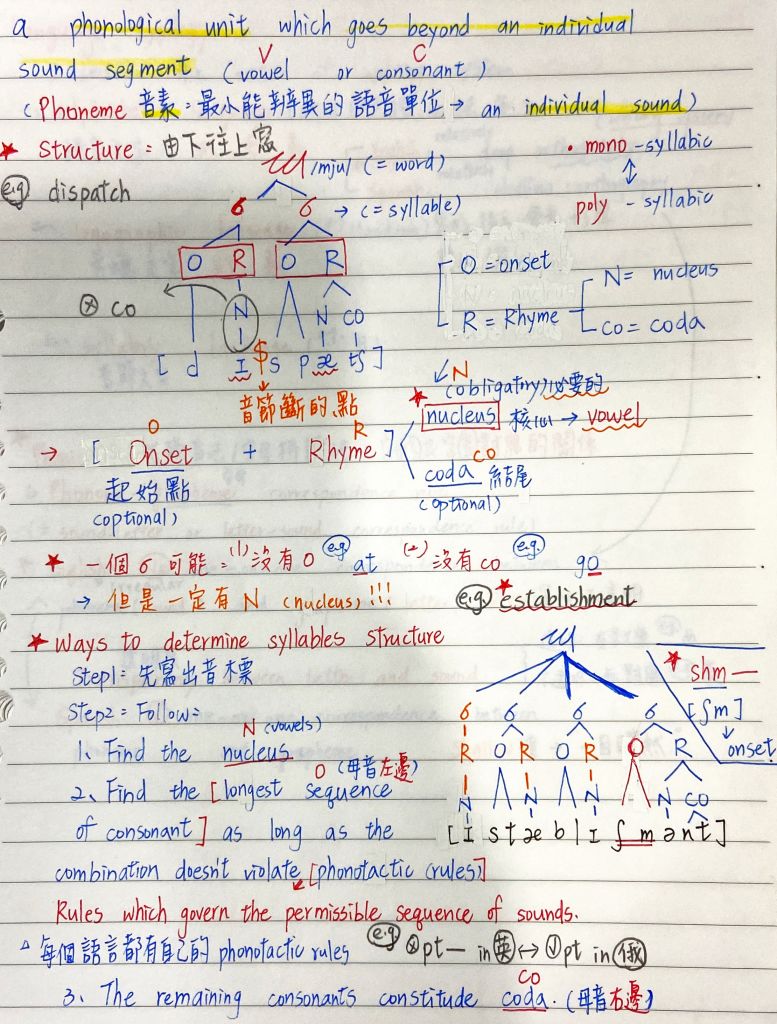 a phonological unit which goes beyond an individual
sound segment (vowel or consonant)
V C
(Phoneme 音素:最小能辨異的語音單位→ an individual sound)
★ Structure:由下往上寫
/mju/ (= word)
• mono-syllabic
↕
poly - syllabic
e.g. dispatch
σ σ → (= syllable)
O R O R
O = onset
R = Rhyme
N = nucleus
CO = coda
ⓧ CO
N N CO
[ d ɪ $ s p æ tʃ ]
音節斷的點
→ [ Onset + Rhyme ]
O R
起始點
(optional)
N
(obligatory)必要的
★ nucleus 核心 → vowel
CO
coda 結尾
(optional)
★ 一個 σ 可能:(1)沒有 O e.g. at (2)沒有 CO e.g. go
→ 但是一定有 N (nucleus)!!!
e.g. ★ establishment
★ Ways to determine syllables structure
Step1:先寫出音標
Step2:Follow:
N (vowels)
1、Find the nucleus
O (母音左邊)
2、Find the [longest sequence
of consonant] as long as the
combination doesn't violate [phonotactic (rules)]
Rules which govern the permissible sequence of sounds.
★ shm—
[ʃm]
↓
onset
σ σ σ σ
R O R O R O R
N N N N CO
[ɪ s t æ b l ɪ ʃ m ə n t]
△ 每個語言都有自己的 phonotactic rules e.g. ⓧ pt— in 英 ↔ ⓥ pt in 俄
CO
3、The remaining consonants constitude coda. (母音右邊)